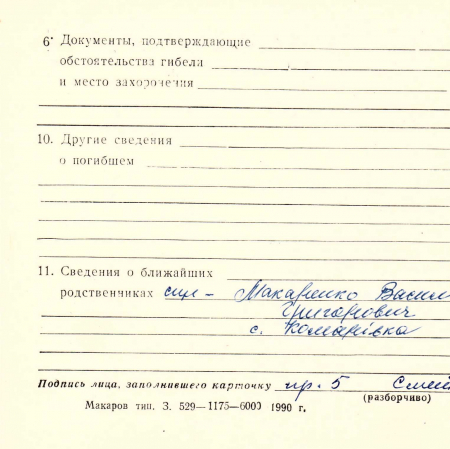 6· Документы, подтверждающие
обстоятельства гибели
и место захоронения
10. Другие сведения
о погибшем
11. Сведения о ближайших
родственниках син – Макаренко Васил
Григорович
с. Комарівка
Подпись лица, заполнившего карточку пр. 5
(разборчиво)
Макаров тип. З. 529—1175—6000 1990 г.